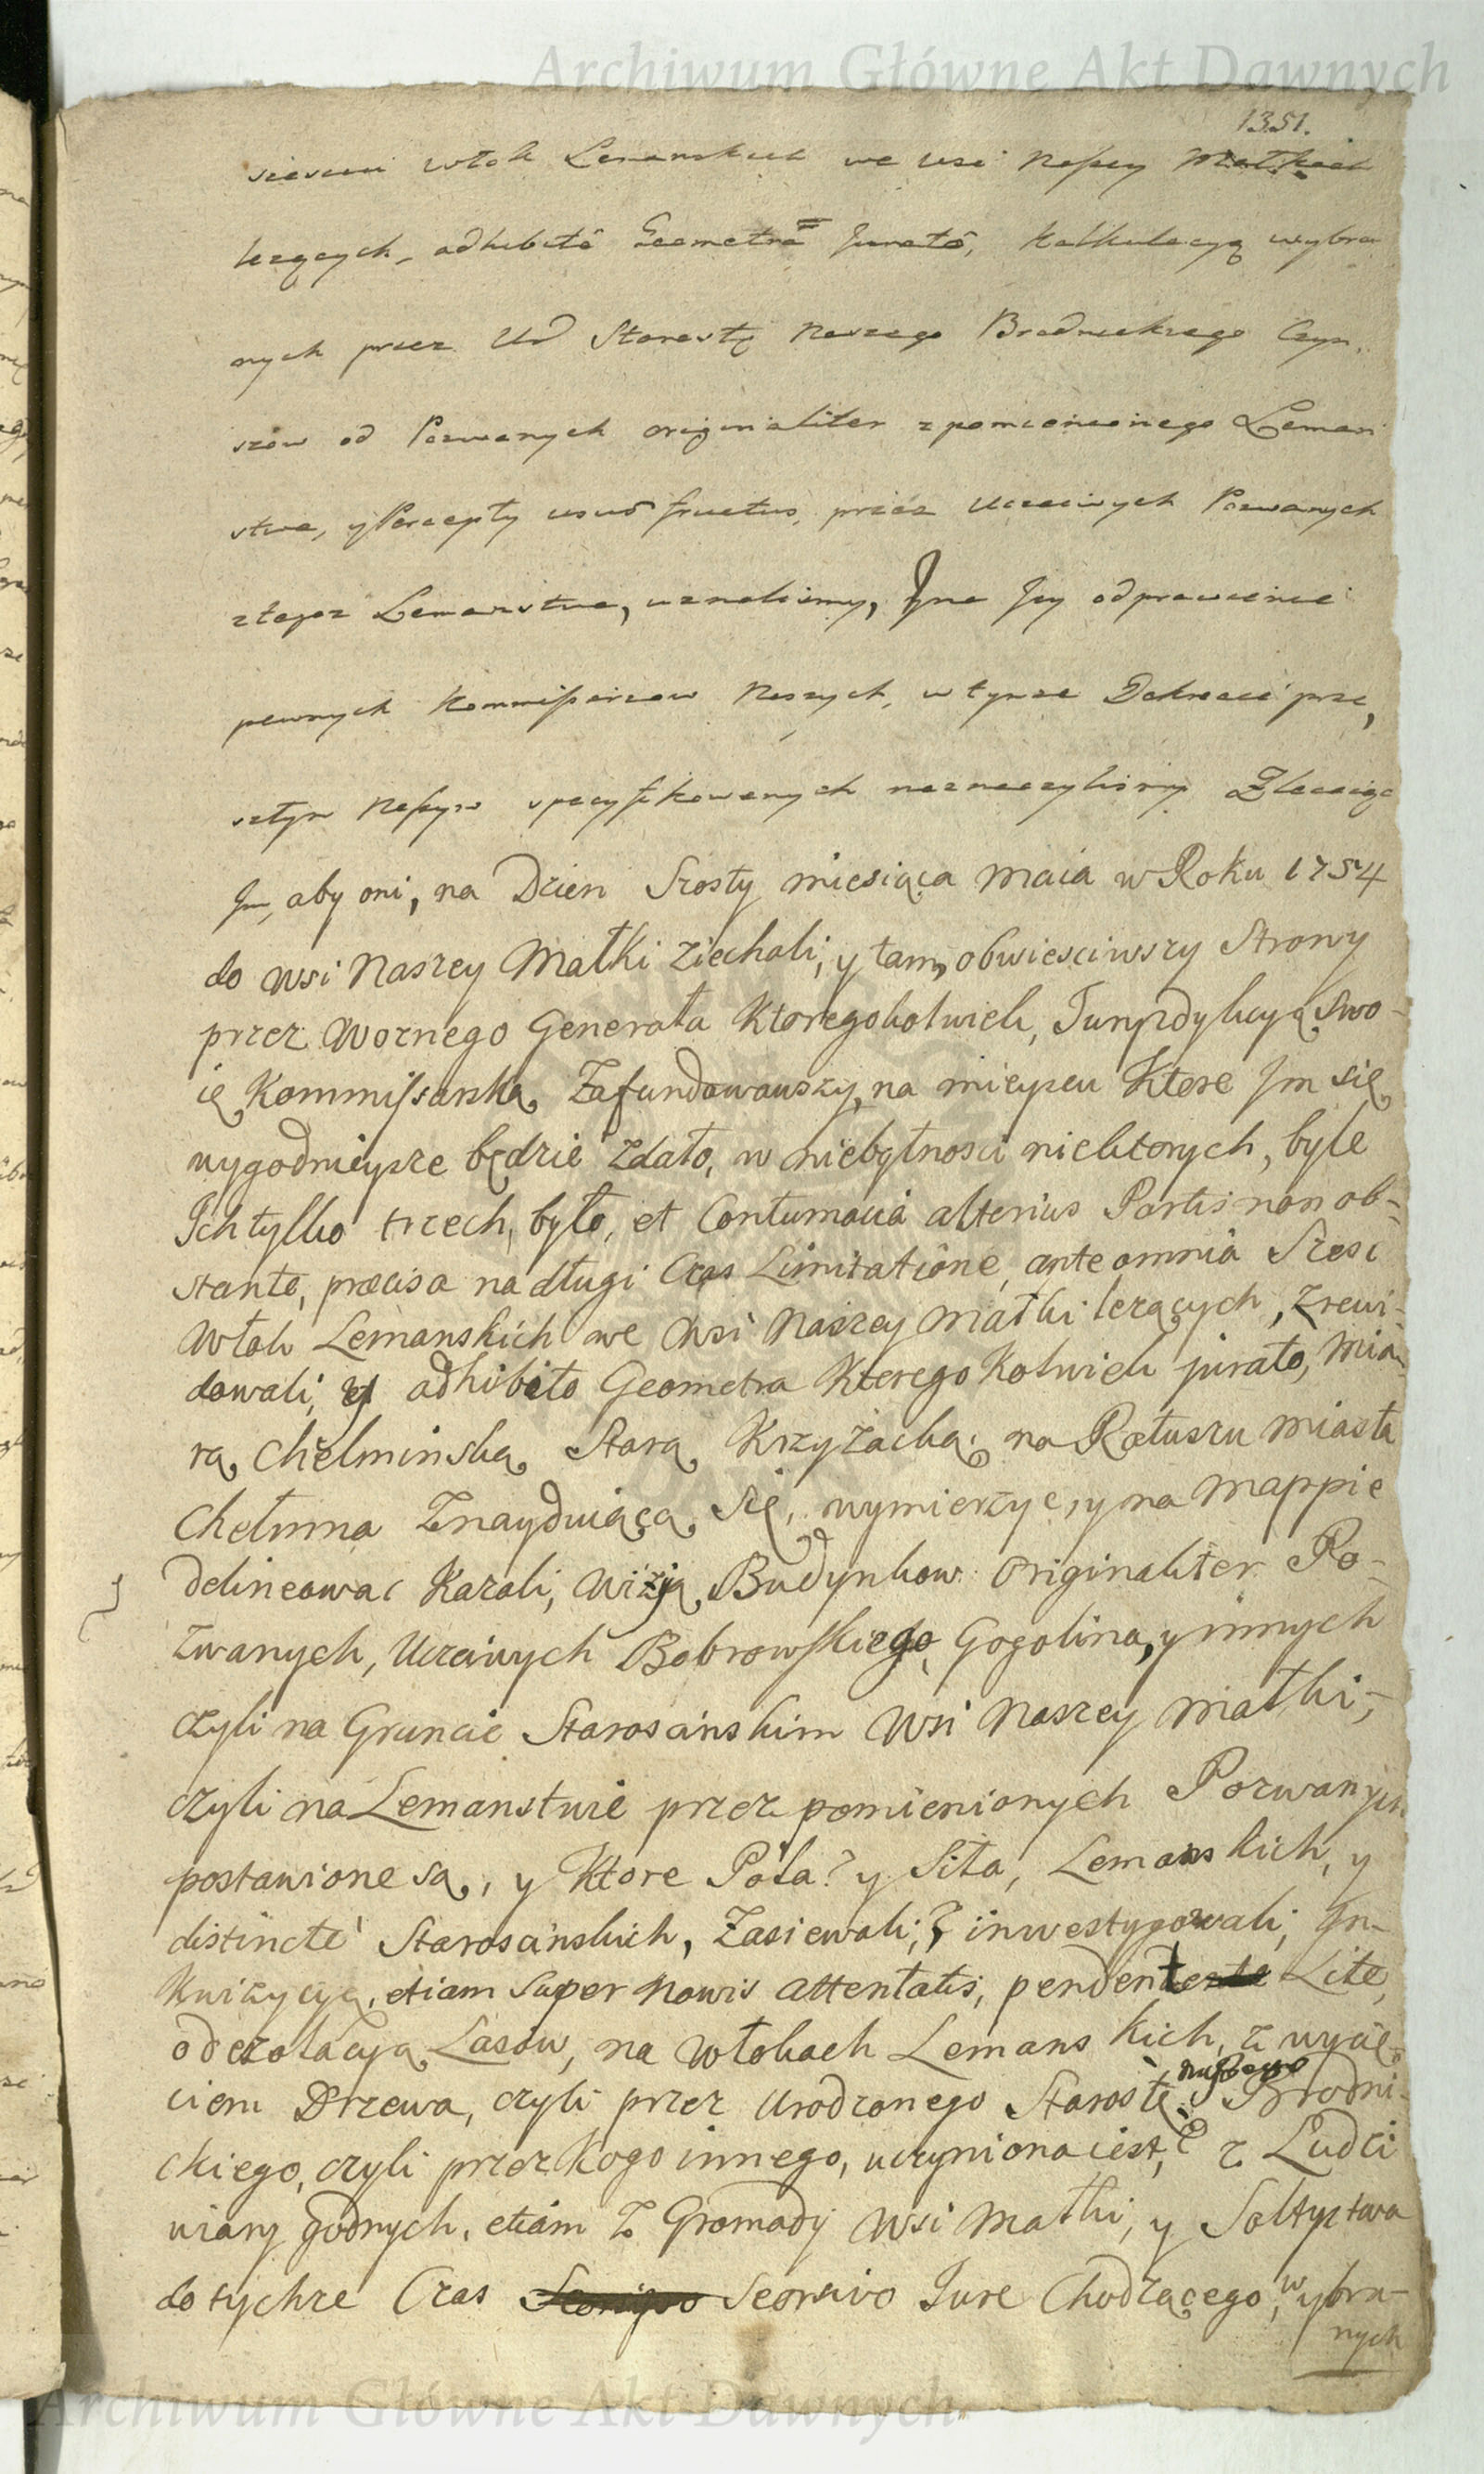 Archiwum Główne Akt Dawnych
1351.
sześciu Włok Lemanskich we wsi Naszey Małkach
leżących, adhibitô Geometrâ Juratô, Kalkulacyą wybra
nych przez Ur Starostę Naszego Brodnickiego Czyn,
szow od Pozwanych originaliter z pomienionego Leman
stwa, y Percepty usus fructus, przez Uczciwych Pozwanych
z tegoż Lemanstwa, uznaliśmy, Jna Jey odprawienie
pewnych Kommissarzow Naszych, w tymże Dekrecie prze,
sztym Naszym specyfikowanych naznaczyliśmy Zlecaiąc
Jm, aby oni, na Dzien Szosty miesiąca Maia w Roku 1754
do wsi Naszey Małki ziechali, y tam, obwiesciwszy Strony
przez Woznego Generała Ktoregokolwiek, Juryzdykcyą Swo-
ię Kommissarską Zafundowawszy, na mieyscu Ktore Jm się
wygodnieysze będzie zdało, w niebytnosci niektorych, byle
Jch tylko trzech, było, et Contumacia alterius Partis non ob-
stante, præcisa na długi Czas Limitatione, ante omnia Szesc
Włok Lemanskich we Wsi Naszey Małki leżących, zrewi-
dowali, y adhibito Geometra Kterego Kolwiek jurato, Mia-
rą Chełminską Starą Krzyżacką na Ratuszu Miasta
Chełmna Znayduiącą Się, wymierzyc, y na Mappie
delineowac Kazali, Wizją Budynkow originaliter Po-
zwanych, Uczciwych Bobrowskiego, Gogolina, y innych
czyli na Gruncie Staroscinskim Wsi Naszey Małki,-
czyli na Lemanstwie przez pomienionych Pozwanych
postawione są, y Ktore Pola? y Siła, Lemanskich, y
distincte Staroscinskich, Zasiewali,? inwestygowali, In-
kwizycyą, etiam Super Novis attentatis, pendente Lite,
o dezolacyą Lasow, na Włokach Lemanskich, z wycię-
ciem Drzewa, czyli przez Urodzonego Starostę Naszego Brodni-
ckiego, czyli przez Kogo innego, uczyniona iest,? z Ludzi
wiary godnych, etiam z Gromady Wsi Małki, y Sołtystwa
do tychże Czas Seorsivo Jure Chodzącego, wybra-
nych
Archiwum Główne Akt Dawnych